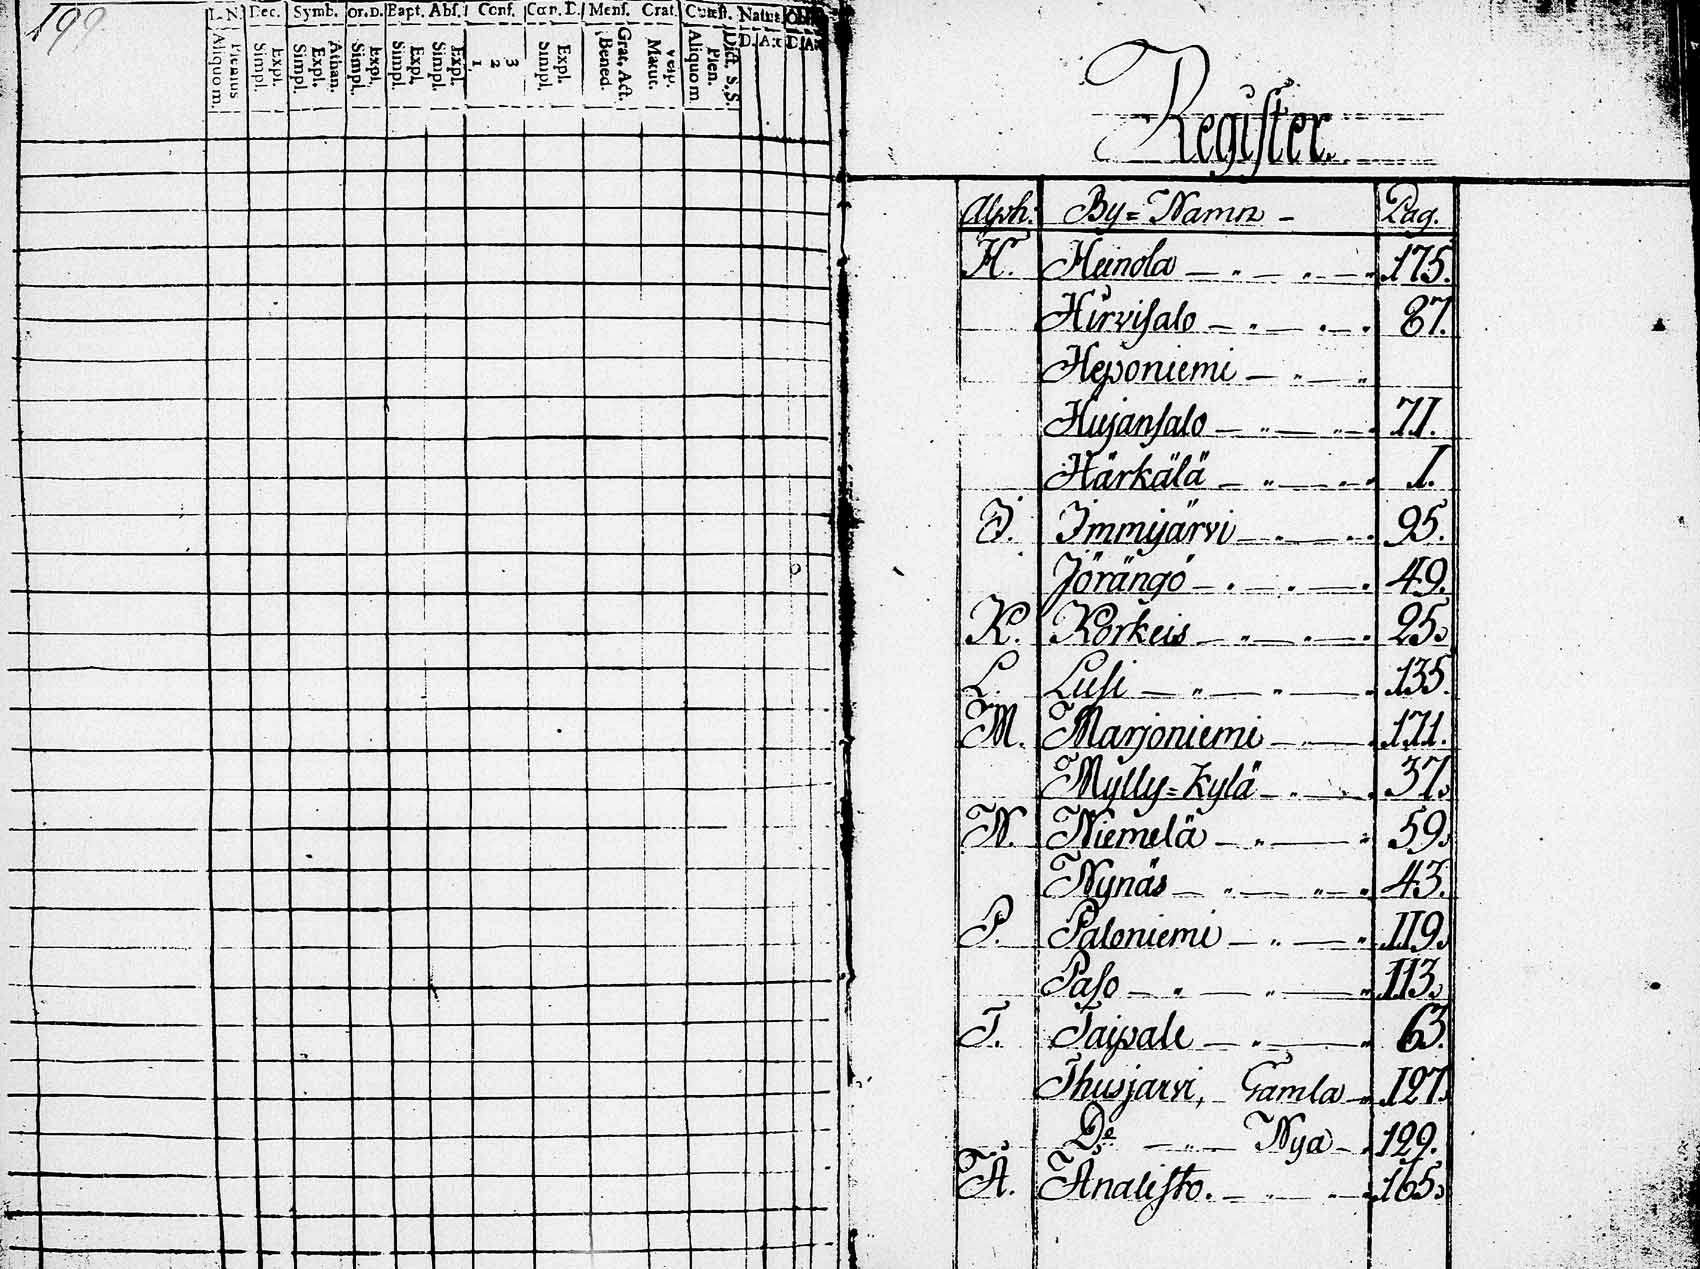 199
L.N. Dec. Symb. Or.D. Bapt. Abs. Conf. Cœn. D. Mens. Orat. Quæst. Natus
Aliquom. Plenius Simpl. Expl. Simpl. Expl. Athan. Simpl. Expl. Simpl. Expl. Simpl. Expl. 1 2 3 Simpl. Expl. Bened. Grat. Act. Matut. Vesp. Aliquom Plen. Dict. S.S. D. D.
Regiſter.
Alph: By=Namn - Pag.
H. Heinola 175.
Hirviſalo 87.
Heponiemi
Hujanſalo 71.
Härkälä 1.
J. Immijärvi 95.
Jörängö 49.
K. Korkeis 25.
L. Luſi 135.
M. Marjoniemi 171.
Mylly=kylä 37.
N. Niemelä 59.
Nynäs 43.
P. Paloniemi 119.
Paſo 113.
T. Taipale 63.
Thusjarvi, Gamla 127.
Do Nya 129.
Ä. Änaliſto. 165.